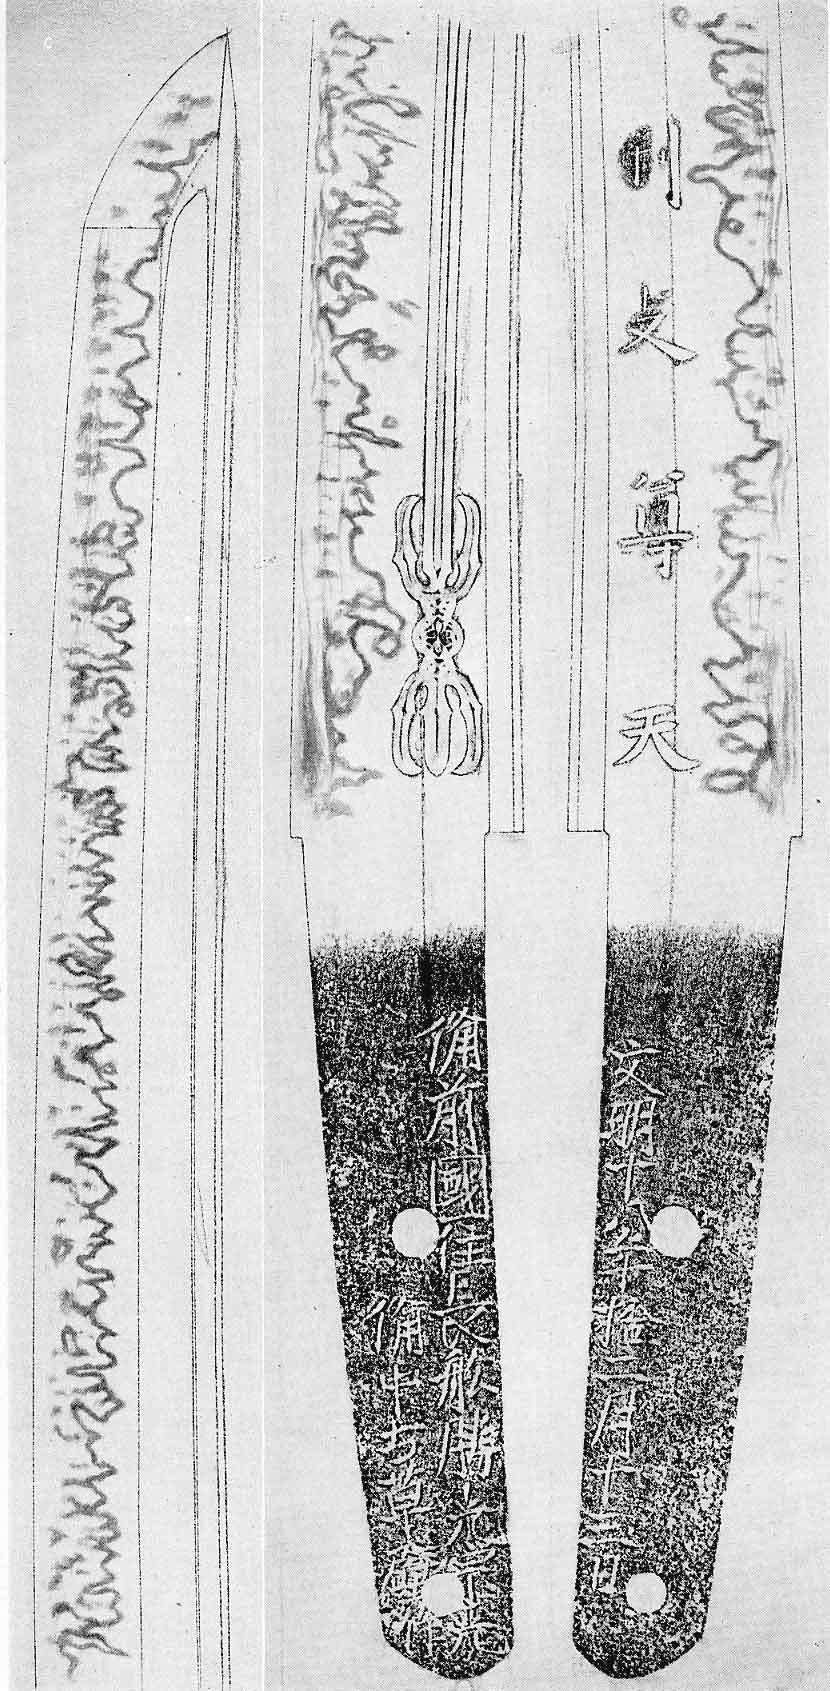 利支尊天
文明十八年拾二月十三日
備前國住長船勝光宗光
備中於草壁作